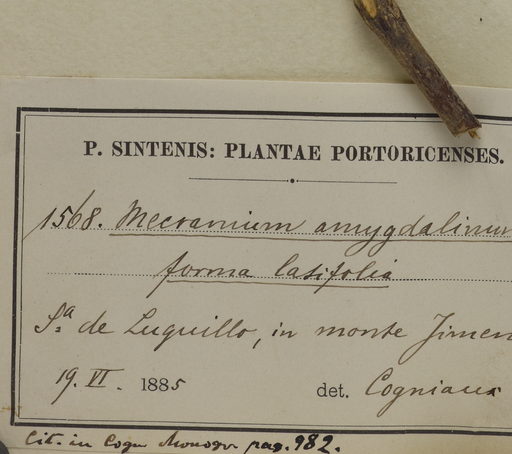 P. SINTENIS: PLANTAE PORTORICENSES.
1568. Mecranium amygdalinum
forma latifolia
Sa. de Luquillo, in monte Jimen
19. VI. 1885 det. Cogniaux
Cit. in Cogn Monogr pag. 982.